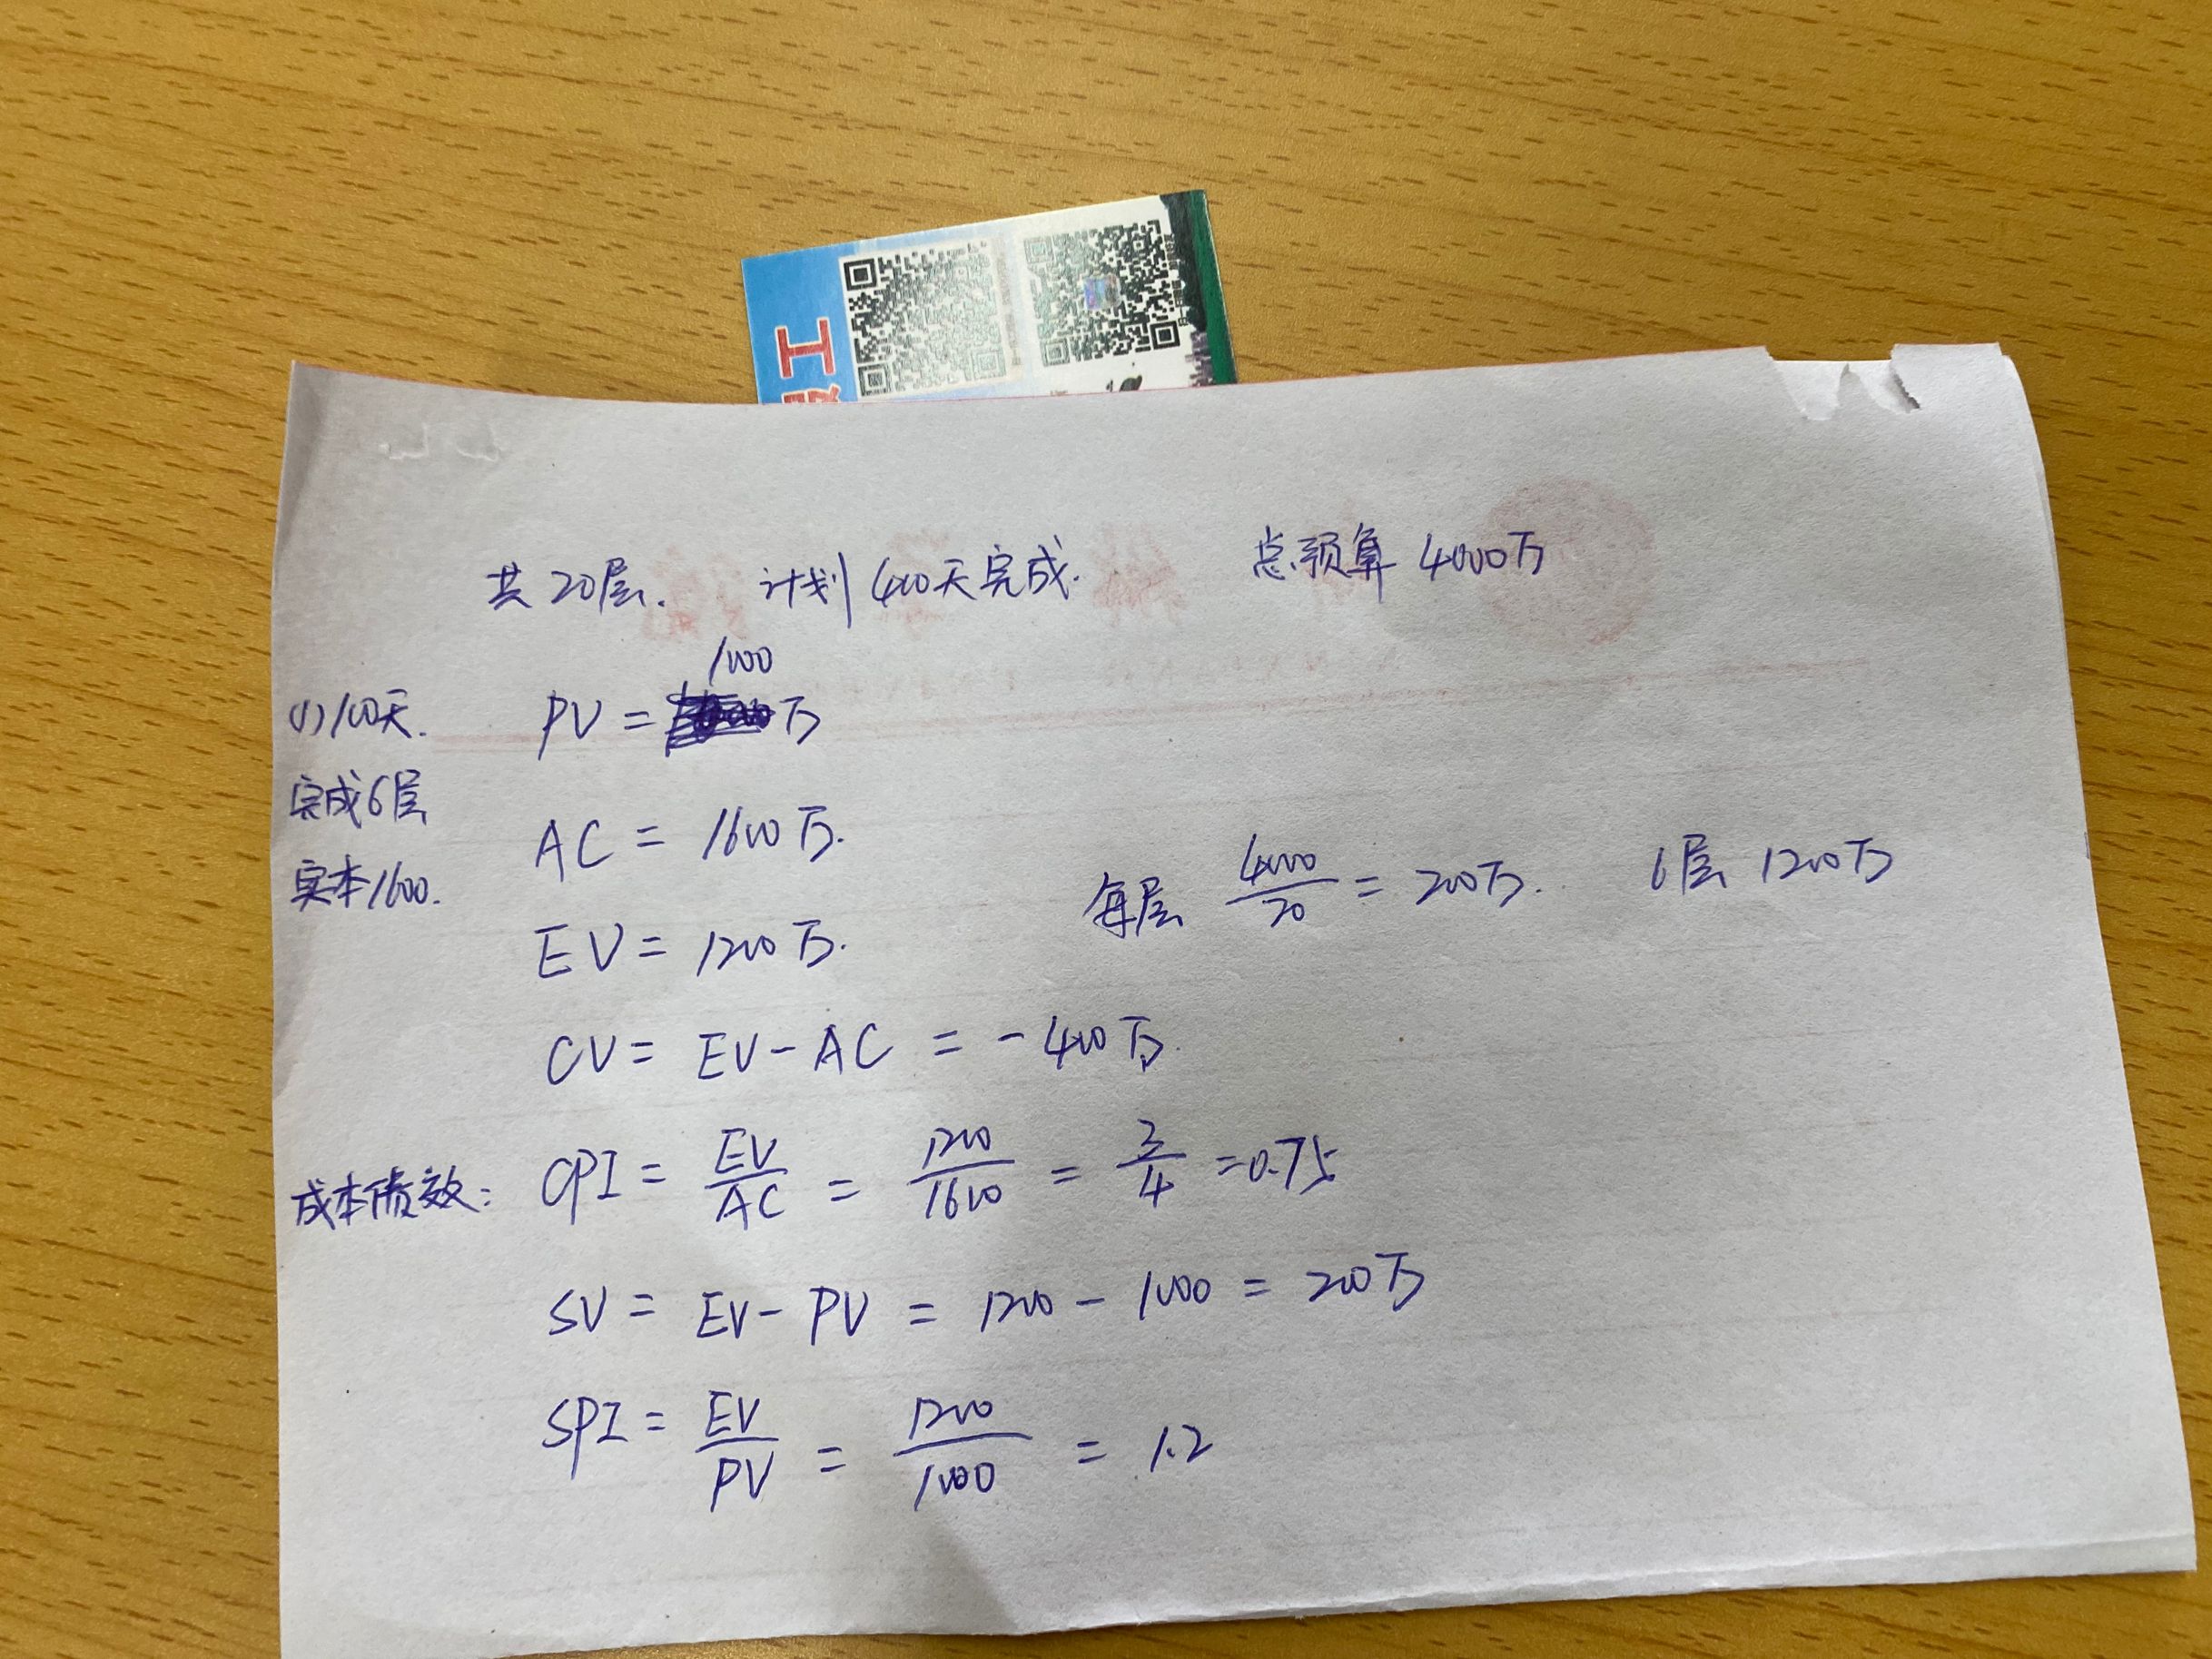 共20层. 计划400天完成. 总预算4000万
(1) 100天. PV = 1000万
完成6层 AC = 1600万.
成本1600. EV = 1200万. 每层 4000/20 = 200万. 6层 1200万
CV = EV - AC = -400万
成本绩效: CPI = EV/AC = 1200/1600 = 3/4 = 0.75.
SV = EV - PV = 1200 - 1000 = 200万
SPI = EV/PV = 1200/1000 = 1.2